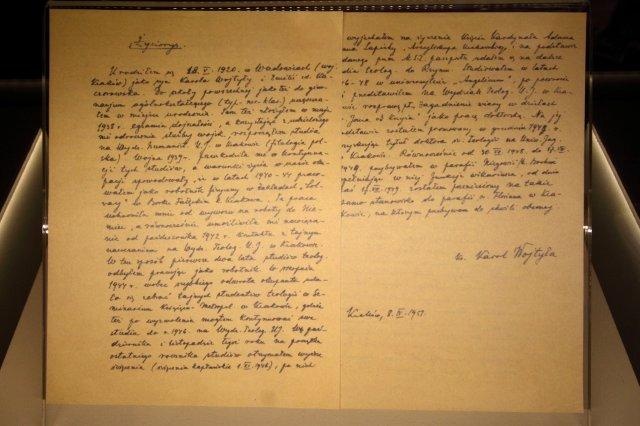 Życiorys.
Urodziłem się 18. V. 1920. w Wadowicach (woj.
Kraków) jako syn Karola Wojtyły i Emilii
Do szkoły powszechnej jakoteż do gim-
nazjum ogólnokształcącego (typ. neo. klas.) uczęszcza-
łem w miejscu urodzenia. Tam też złożyłem w maju
1938 r. egzamin dojrzałości, a korzystając z udzielonego
mi odroczenia służby wojsk. rozpocząłem studia
na Wydz. Humanist. U. J. w Krakowie (filologia pol-
ska). Wojna 1939 r. przeszkodziła mi w kontynua-
cji tych studiów, a warunki życia w czasie oku-
pacji spowodowały, iż w latach 1940-44 praco-
wałem jako robotnik fizyczny w zakładach "Sol-
vay" w Borku Fałęckim k. Krakowa. Ta praca
uchroniła mnie od wywozu na roboty do Nie-
miec, a równocześnie umożliwiła mi nawiąza-
nie od października 1942 r. kontaktu z tajnym
nauczaniem na Wydz. Teolog. U. J. w Krakowie
W ten sposób pierwsze dwa lata studiów teolog.
odbyłem pracując jako robotnik. W sierpniu
1944 r. wobec szybkiego odwrotu okupanta uda-
ło się zebrać tajnych studentów teologii w Se-
minarium Książęco-Metropol. w Krakowie, gdzie
też po wyzwoleniu mogłem kontynuować swe
studia do r. 1946. na Wydz. Teolog. UJ. W paź-
dzierniku i listopadzie tegoż roku na początku
ostatniego rocznika studiów otrzymałem wyższe
święcenia (święcenia kapłańskie 1. XI. 1946), po nich
wyjechałem na życzenie Księcia Kardynała Adama
Sapiehy Arcybiskupa Krakowskiego i na podstawie
danego przez M.S.Z. paszportu udałem się na dalsze
studia teolog. do Rzymu. Studiowałem w latach
46-48 w uniwersytecie "Angelicum", po powrocie
przedstawiłem na Wydziale Teolog. U. J. w Kra-
kowie rozprawę pt. Zagadnienie wiary w dziełach
Jana od Krzyża" jako pracę doktorską. Na jej
podstawie zostałem promowany w grudniu 1948 r.
uzyskując tytuł doktora św. Teologii na Uniw. Jag.
w Krakowie. Równocześnie od
przebywałem w parafii Niegowić k. Bochni
pełniąc w niej funkcję wikariusza, od dnia
zostałem przeniesiony na takie
samo stanowisko do parafii św. Floriana w Kra-
kowie, na którym przebywam do chwili obecnej
ks. Karol Wojtyła
Kraków,